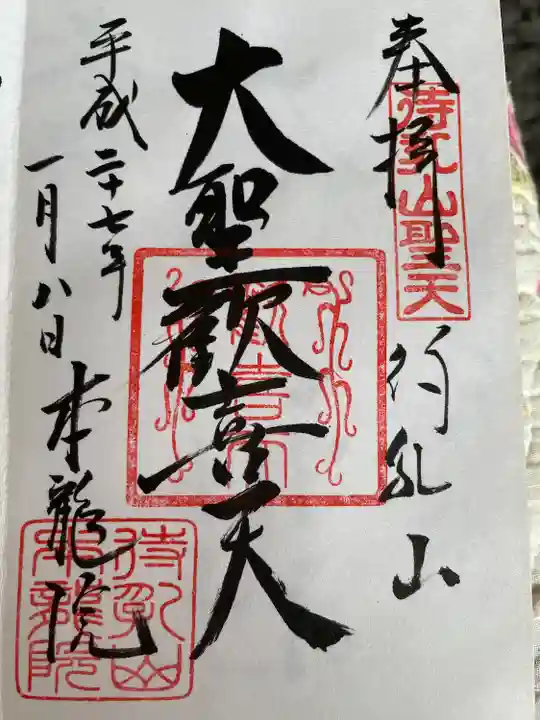 奉拝
待乳山聖天
待乳山
大聖歓喜天
平成二十七年
一月八日
本龍院
待乳山
本龍院